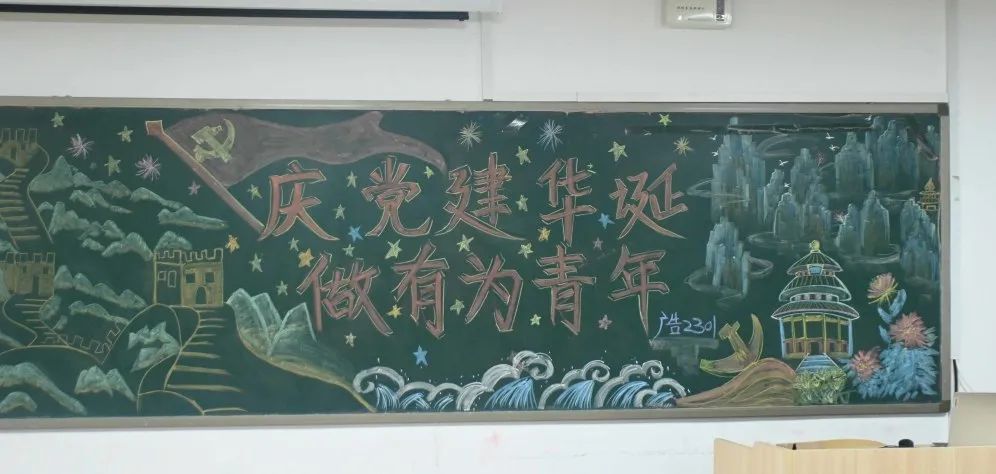 庆党建华诞
做有为青年
广告2301